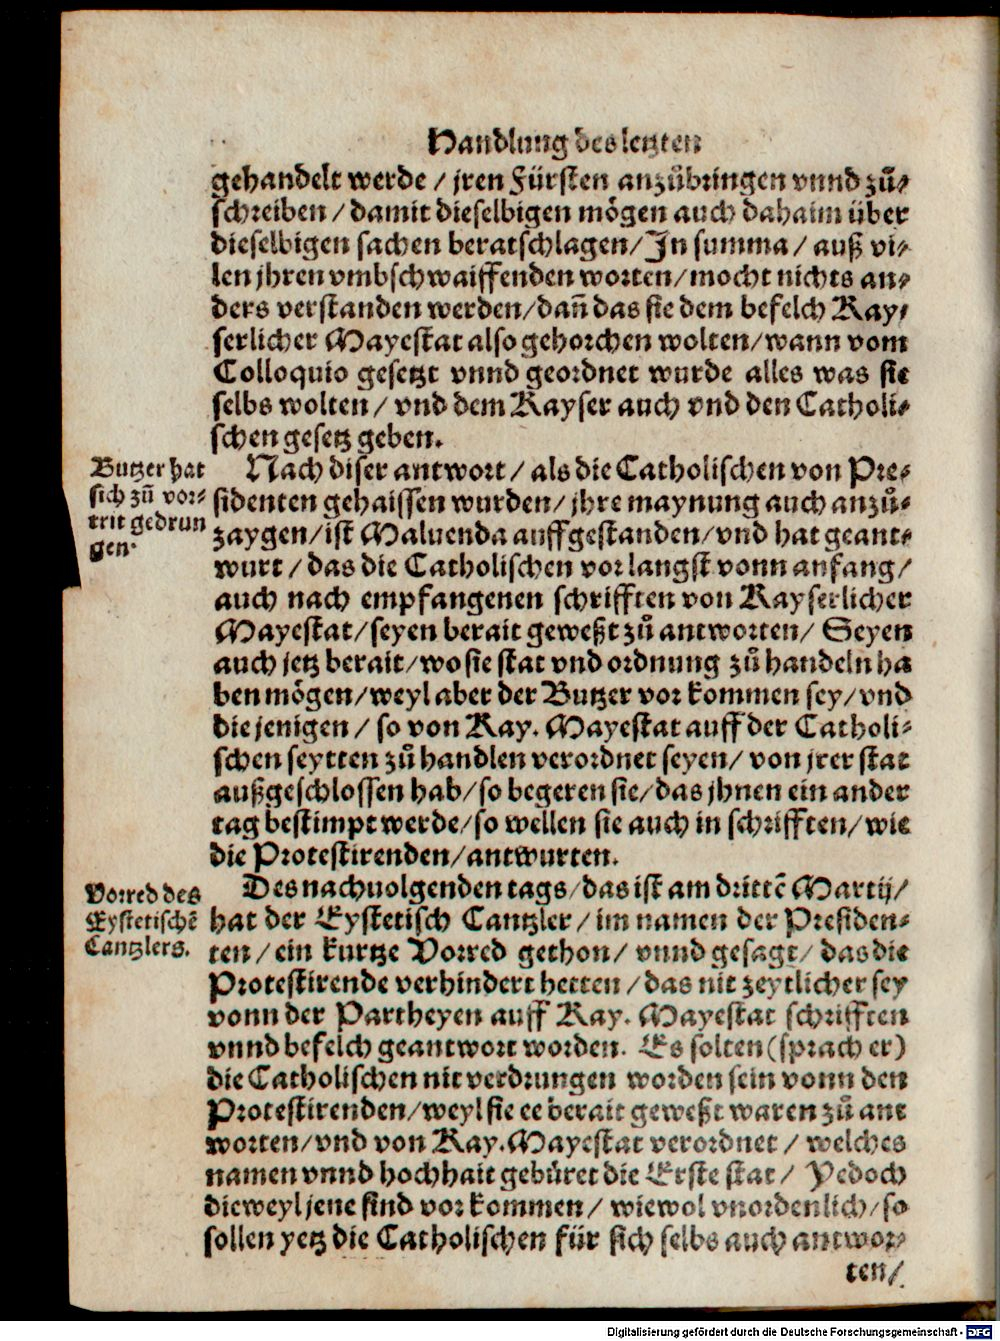 Handlung des letzten
gehandelt werde / jren Fürsten anzůbringen vnnd zů⸗
schreiben / damit dieselbigen mögen auch dahaim über
dieselbigen sachen beratschlagen / In summa / auß vi⸗
len jhren vmbschwaiffenden worten / mocht nichts an⸗
ders verstanden werden / dañ das sie dem befelch Kay⸗
serlicher Mayestat also gehorchen wolten / wann vom
Colloquio gesetzt vnnd geordnet wurde alles was sie
selbs wolten / vnd dem Kayser auch vnd den Catholi⸗
schen gesetz geben.
Butzer hat
sich zů vor⸗
trit gedrun
gen.
Nach diser antwort / als die Catholischen von Pre⸗
sidenten gehaissen wurden / jhre maynung auch anzů⸗
zaygen / ist Maluenda auffgestanden / vnd hat geant⸗
wurt / das die Catholischen vorlangst vonn anfang /
auch nach empfangenen schrifften von Kayserlicher
Mayestat / seyen berait geweßt zů antworten / Seyen
auch jetz berait / wo sie stat vnd ordnung zů handeln ha
ben mögen / weyl aber der Butzer vor kommen sey / vnd
die jenigen / so von Kay. Mayestat auff der Catholi⸗
schen seytten zů handlen verordnet seyen / von jrer stat
außgeschlossen hab / so begeren sie / das jhnen ein ander
tag bestimpt werde / so wellen sie auch in schrifften / wie
die Protestirenden / antwurten.
Vorred des
Eystetischẽ
Cantzlers.
Des nachuolgenden tags / das ist am drittẽ Martij /
hat der Eystetisch Cantzler / im namen der Presiden⸗
ten / ein kurtze Vorred gethon / vnnd gesagt / das die
Protestirende verhindert hetten / das nit zeytlicher sey
vonn der Partheyen auff Kay. Mayestat schrifften
vnnd befelch geantwort worden. Es solten (sprach er)
die Catholischen nit verdrungen worden sein vonn den
Protestirenden / weyl sie ee berait geweßt waren zů ant
worten / vnd von Kay. Mayestat verordnet / welches
namen vnnd hochhait gebüret die Erste stat / Yedoch
dieweyl jene sind vor kommen / wiewol vnordenlich / so
sollen yetz die Catholischen für sich selbs auch antwor⸗
ten /
Digitalisierung gefördert durch die Deutsche Forschungsgemeinschaft - DFG